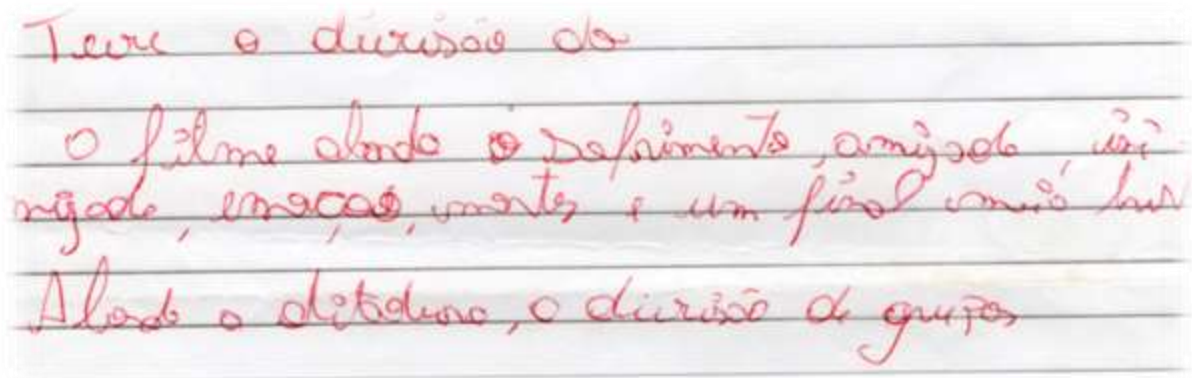 Teve a divisão da
O filme aborda o sofrimento, amizade, ini-
mizade, emoção, mortes e um final meio
Aborda a ditadura, a divisão de grupos